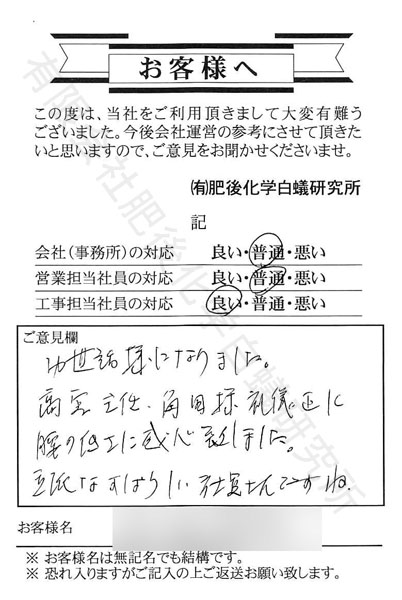 お客様へ
この度は、当社をご利用頂きまして大変有難う
ございました。今後会社運営の参考にさせて頂きた
いと思いますので、ご意見をお聞かせくださいませ。
㈲肥後化学白蟻研究所
記
会社（事務所）の対応 良い・普通・悪い
営業担当社員の対応 良い・普通・悪い
工事担当社員の対応 良い・普通・悪い
ご意見欄
お世話様になりました。
主任、角田様礼儀正に
腰の低さに感心致しました。
すばらしい社員さんですね。
お客様名
※ お客様名は無記名でも結構です。
※ 恐れ入りますがご記入の上ご返送お願い致します。
有限会社肥後化学白蟻研究所